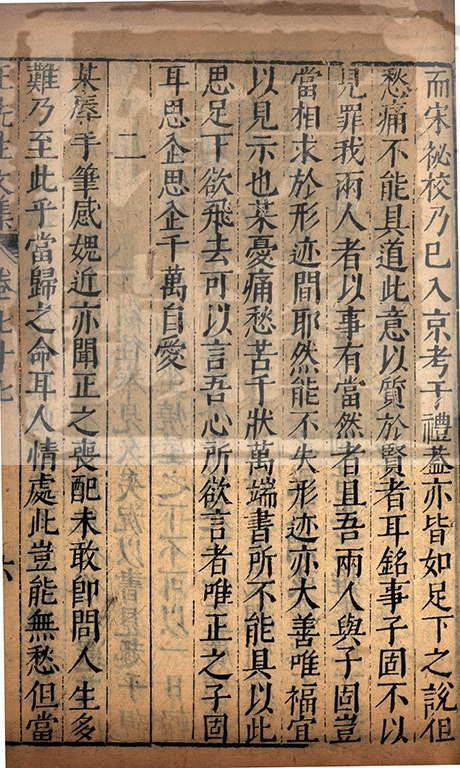 而宋祕校乃已入京考于禮蓋亦皆如足下之說但
愁痛不能具道此意以質於賢者耳銘事子固不以
見罪我兩人者以事有當然者且吾兩人與子固豈
當相求於形迹間耶然能不失形迹亦大善唯福宜
以見示也某憂痛愁苦千狀萬端書所不能具以此
思足下欲飛去可以言吾心所欲言者唯正之子固
耳思企思企千萬自愛
二
某辱手筆感媿近亦聞正之喪配未敢卽問人生多
難乃至此乎當歸之命耳人情處此豈能無愁但當
王先生文集 卷七十七 六